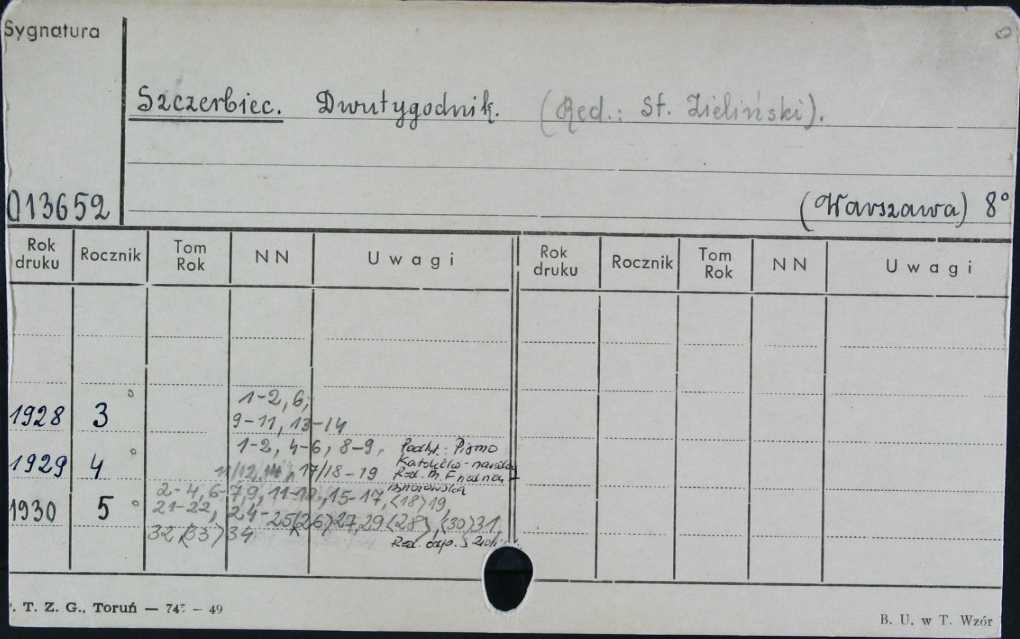 Sygnatura
Szczerbiec. Dwutygodnik. (Red.: St. Zieliński).
013652
(Warszawa) 8°
Rok druku Rocznik Tom Rok NN Uwagi Rok druku Rocznik Tom Rok NN Uwagi
1-2, 6,
1928 3° 9-11, 13-14
1-2, 4-6, 8-9, Podtyt.: Pismo
1929 4° 11/12, 14, 17/18-19 Katolicko-narodo
Red. M.
2-4, 6-7, 9, 15-17, (18) 19,
1930 5° 21-22, 24-25 (26) 27, 29 (28), (30) 31,
32, (33) 34 Red. odp. S
T. Z. G., Toruń — 745 — 49
B. U. w T. Wzór